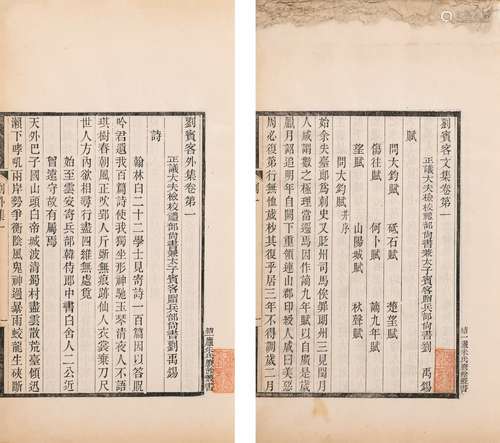 劉賓客文集卷第一
正議大夫檢校禮部尚書兼太子賓客贈兵部尚書劉 禹錫
賦
問大鈞賦 砥石賦 楚望賦
傷往賦 何卜賦 謫九年賦
望賦 山陽城賦 秋聲賦
問大鈞賦并序
始余失臺郎爲刺史又貶州司馬俟罪朗州三見閏月
人咸謂數之極理當遷焉因作謫九年賦以自廣是歲
臘月詔追明年自闕下重領連山郡印綬人咸曰美惡
周必復第行無恤歲杪其復乎居三年不得調歲二月
劉賓客外集卷第一
正議大夫檢校禮部尚書兼太子賓客贈兵部尚書劉 禹錫
詩
翰林白二十二學士見寄詩一百篇因以答貺
吟君遺我百篇詩使我獨坐形神馳玉琴清夜人不語
琪樹春朝風正吹郢人斤斲無痕跡仙人衣裳棄刀尺
世人方內欲相尋行盡四維無處覓
始至雲安寄兵部韓侍郎中書白舍人二公近
曾遠守故有屬焉
天外巴子國山頭白帝城波清蜀村盡雲散楚臺傾迅
瀨下哮吼兩岸勢爭衡陰風鬼神過暴雨蛟龍生硤斷